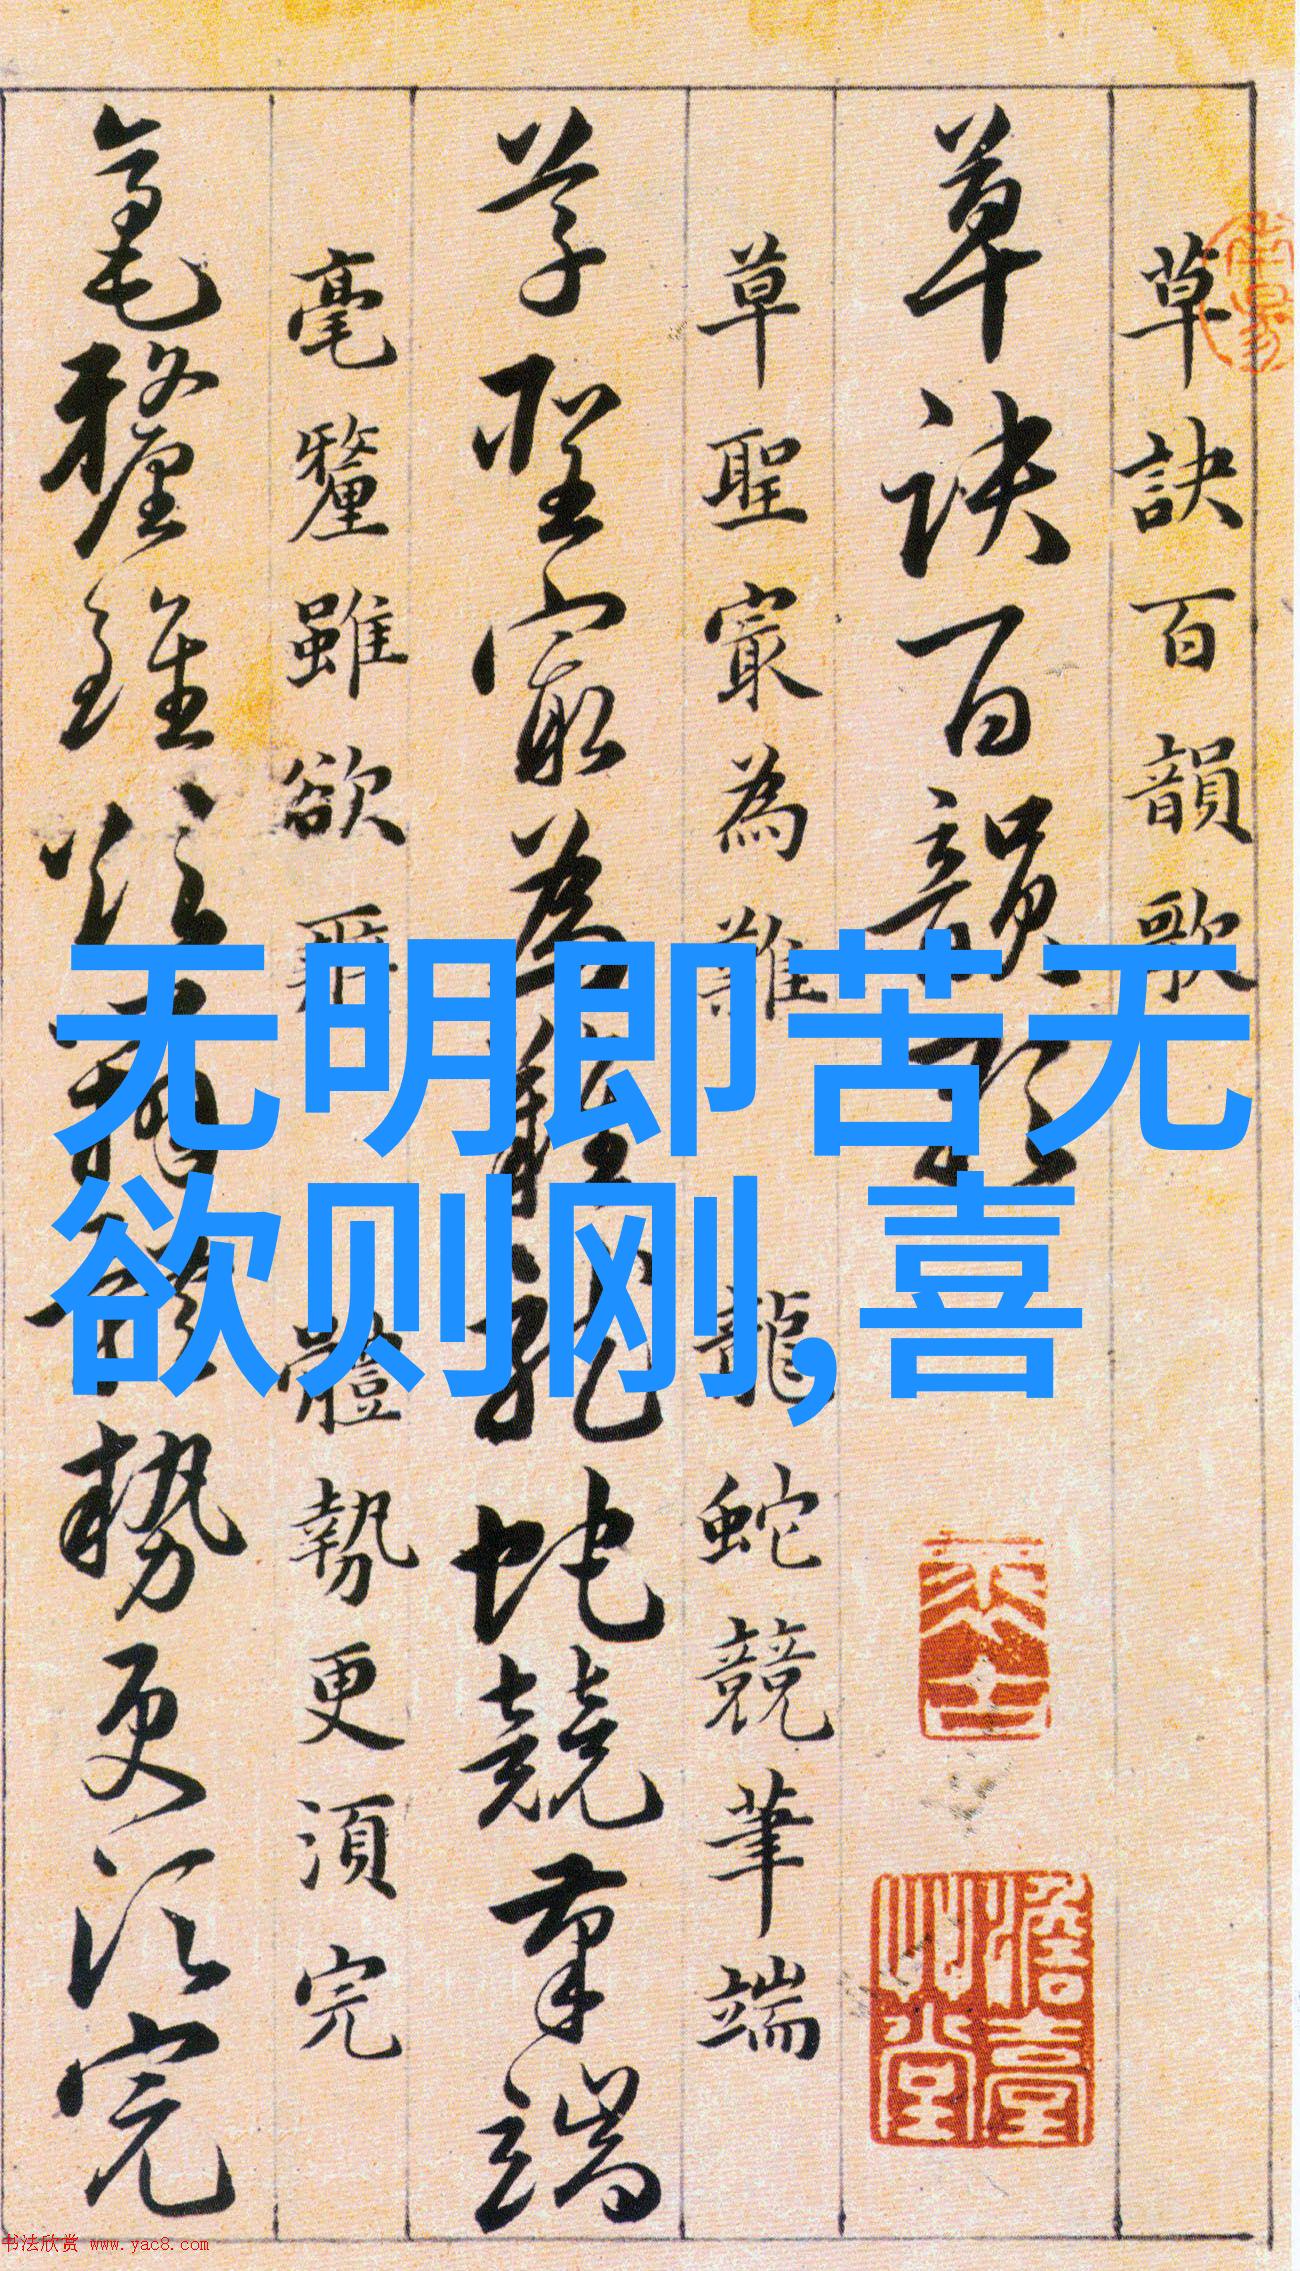 草訣百韻歌
草訣百韻歌
草聖冣為難 龍蛇競筆端
草聖冣為難龍蛇競筆端
毫釐雖欲辨 體勢更須完
毫釐雖欲辨體勢更須完
无明即苦无
欲则刚,喜
书法欣赏 www.yac8.com